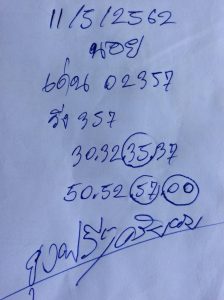 11/5/2562
นอย
เด่น 02357
วิ่ง 357
30.32 35.37
50.52 57.00